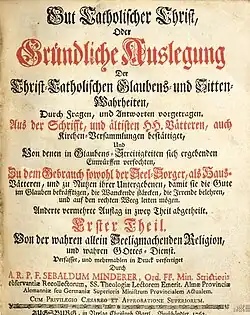 Gut Catholischer Christ,
Oder
Gründliche Auslegung
Der
Christ-Catholischen Glaubens- und Sitten-
Wahrheiten,
Durch Fragen, und Antworten vorgetragen.
Aus der Schrifft, und ältisten HH. Vätteren, auch
Kirchen-Versammlungen bestättiget,
Und
Von denen in Glaubens-Streitigkeiten sich ergebenden
Einwürffen verfochten,
Zu dem Gebrauch sowohl der Seel-Sorger, als Haus-
Vätteren, und zu Nutzen ihrer Untergebenen, damit sie die Gute
im Glauben bekräfftigen, die Wanckende stärcken, die Irrende belehren,
und auf den rechten Weeg leiten mögen.
Anderte vermehrte Auflag in zwey Theil abgetheilt.
Erster Theil.
Von der wahren allein Seeligmachenden Religion,
und wahren GOttes-Dienst.
Verfasset, und mehrmahlen in Druck verfertiget
Durch
A. R. P. F. SEBALDUM MINDERER, Ord. FF. Min. Strictioris
observantiæ Recollectorum, SS. Theologiæ Lectorem Emerit. Almæ Provinciæ
Alemanniæ seu Germaniæ Superioris Ministrum Provincialem Actualem.
CUM PRIVILEGIO CÆSAREO ET APPROBATIONE SUPERIORUM.